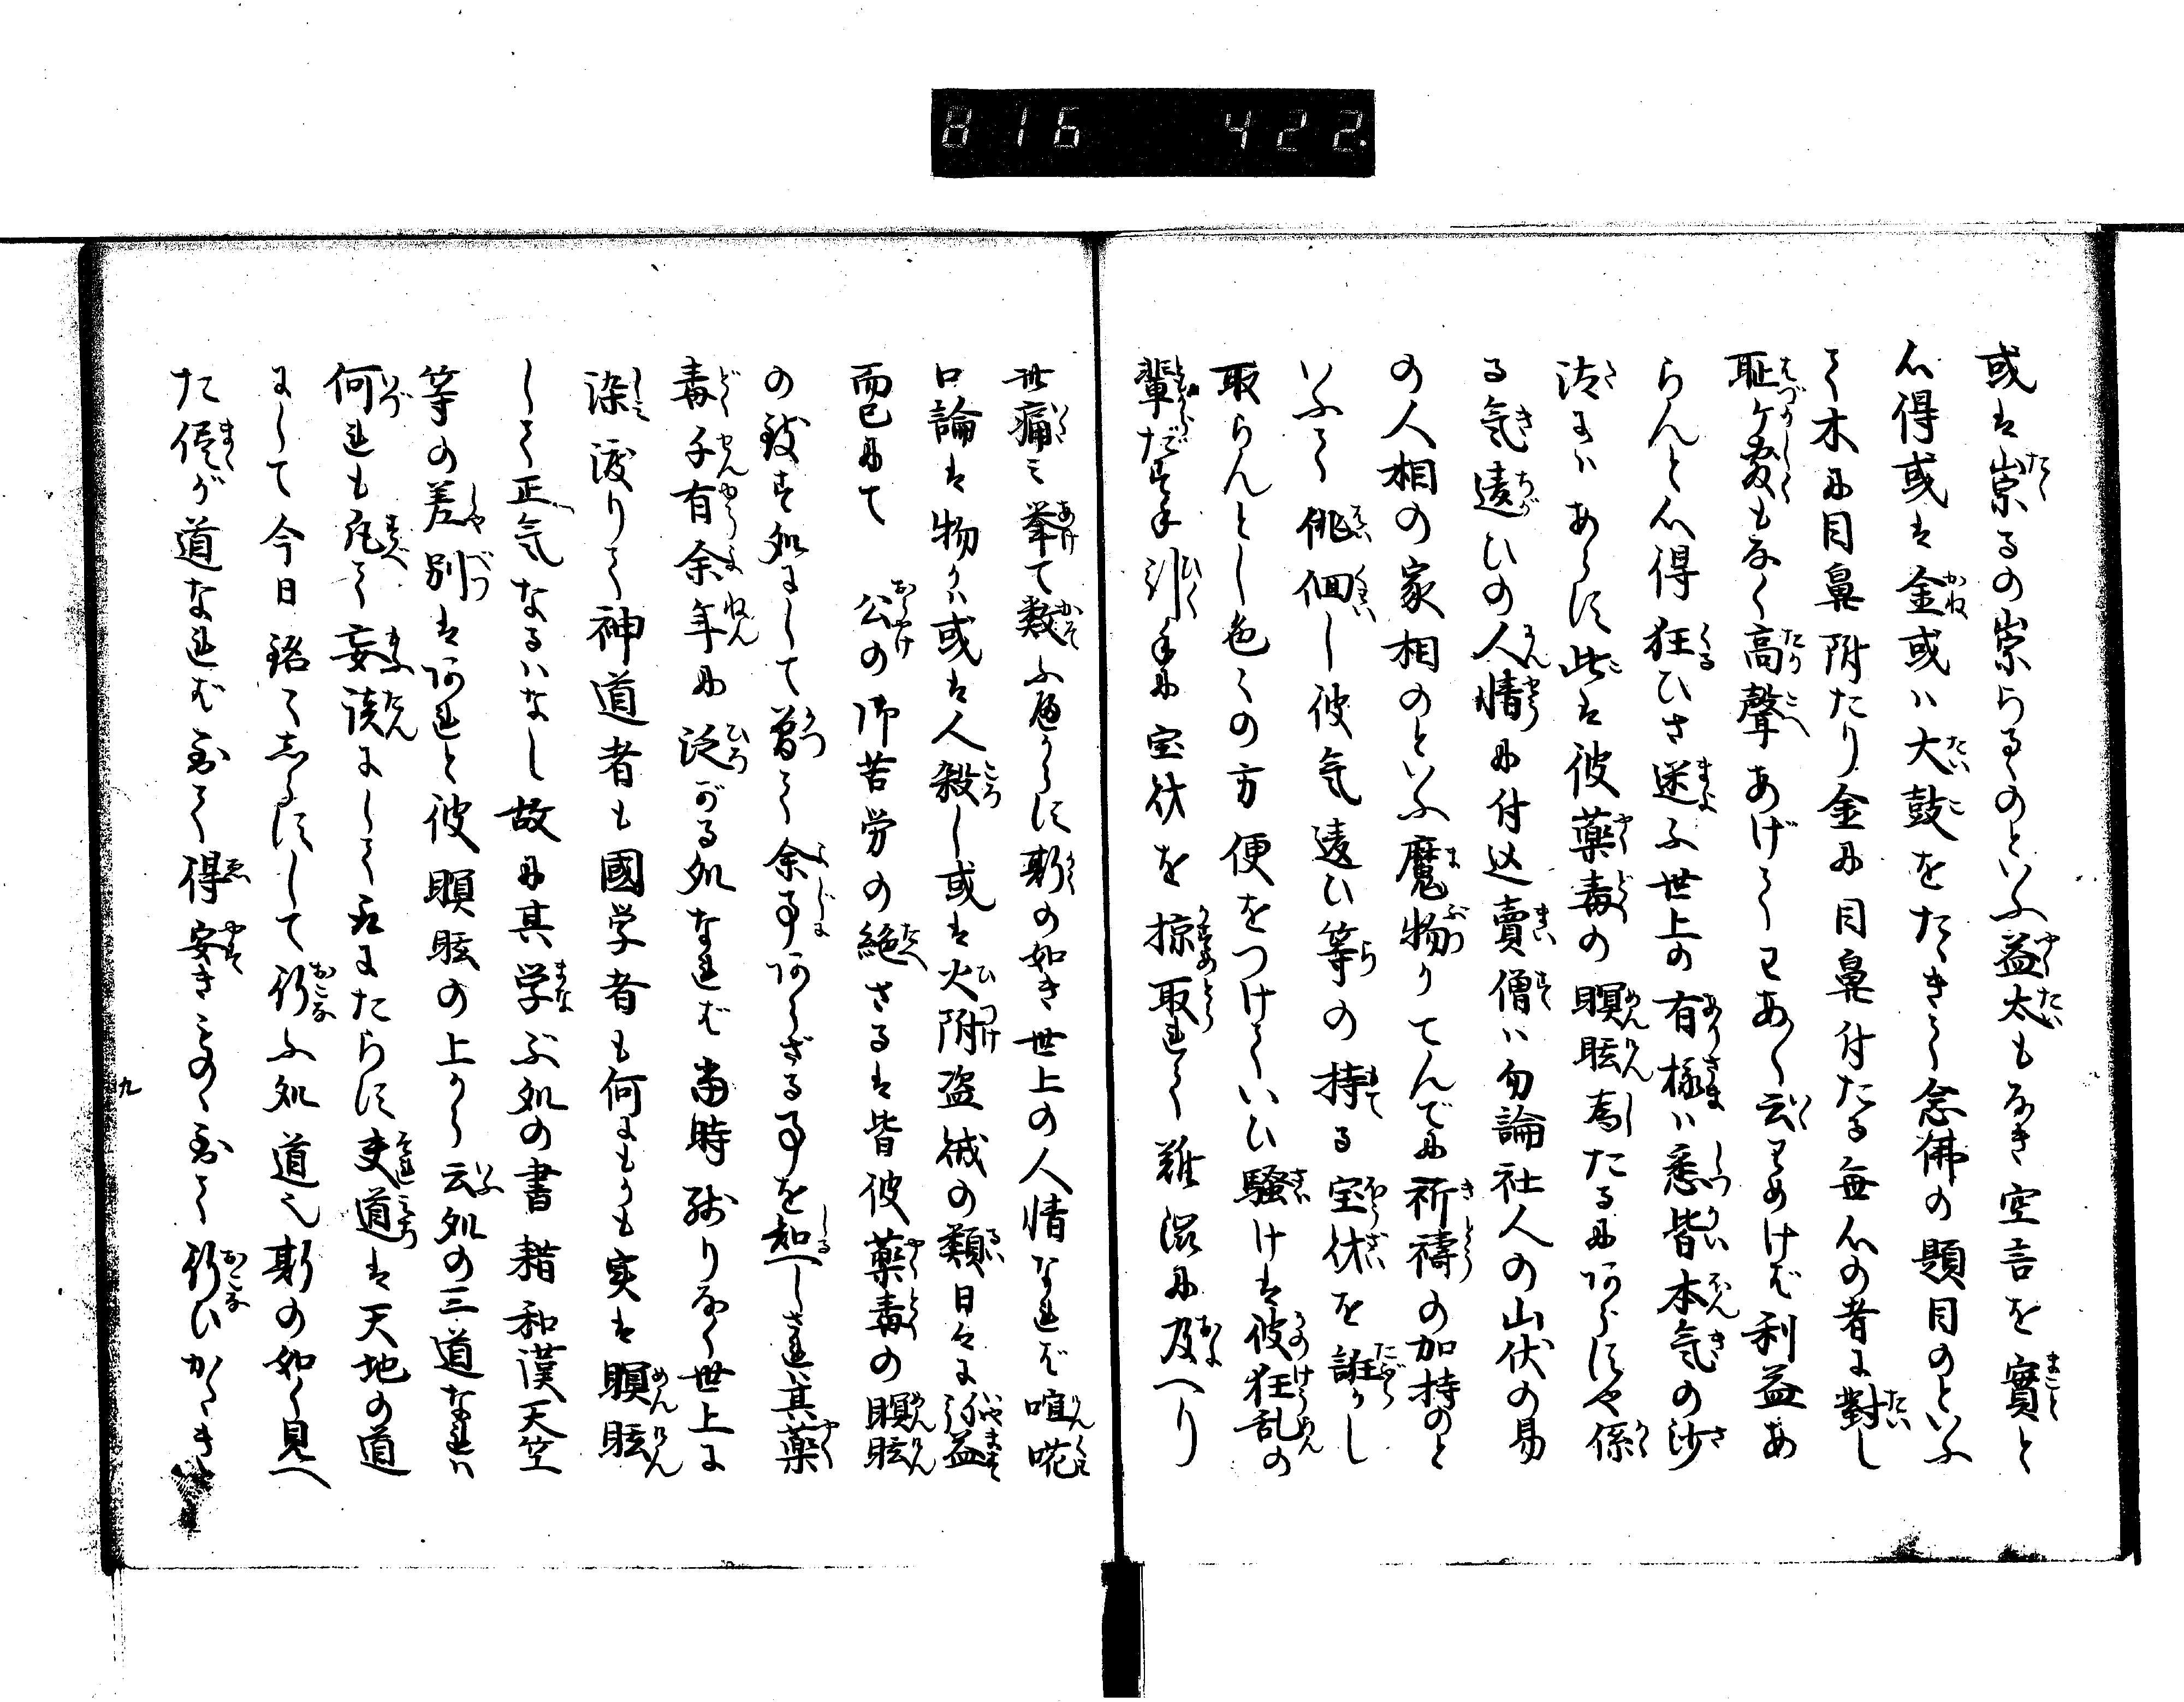 816 422.
或は崇るの崇らるゝのといふ益太もなき空言を實と
心得或は金或ハ大鼓をたゝきて念佛の題目のといふ
て木に目鼻附たり金に目鼻付たる無心の者に對し
耻ケ敷もなく高聲あげてわあ〳〵云わめけば利益あ
らんと心得狂ひさ迷ふ世上の有様ハ悉皆本気の沙
汰にハあらず此は彼藥毒の瞑眩為たるにあらずや係
る気違ひの人情に付込賣僧ハ勿論社人の山伏の易
の人相の家相のといふ魔物りてんでに祈禱の加持のと
いふて俳徊し彼気違ひ等の持てる宝財を誑かし
取らんとし色々の方便をつけていひ騒けは彼狂乱の
輩だます手引手に宝財を掠取れて難渋に及へり
此痛ミ挙て数ふ可からず斯の如き世上の人情なれば喧嘩
口論は物かハ或は人殺し或は火附盗賊の類日々に弥益
而已にて 公の御苦労の絶さるは皆彼藥毒の瞑眩
の致す処にして曽て余事にあらざる事を知べし実其藥
毒千有余年に泛がる処なれば當時残りなく世上に
染渡りて神道者も國学者も何にもかも実は瞑眩
して正気なるハなし故に其学ぶ処の書籍和漢天竺
等の差別はあれと彼瞑眩の上から云処の三道なれハ
何れも凡て妄談にして取にたらず夫道は天地の道
にして今日銘々しらずして行ふ処道也斯の如く見へ
た侭が道なれば至て得安きものゝ至て行ひがたき
九